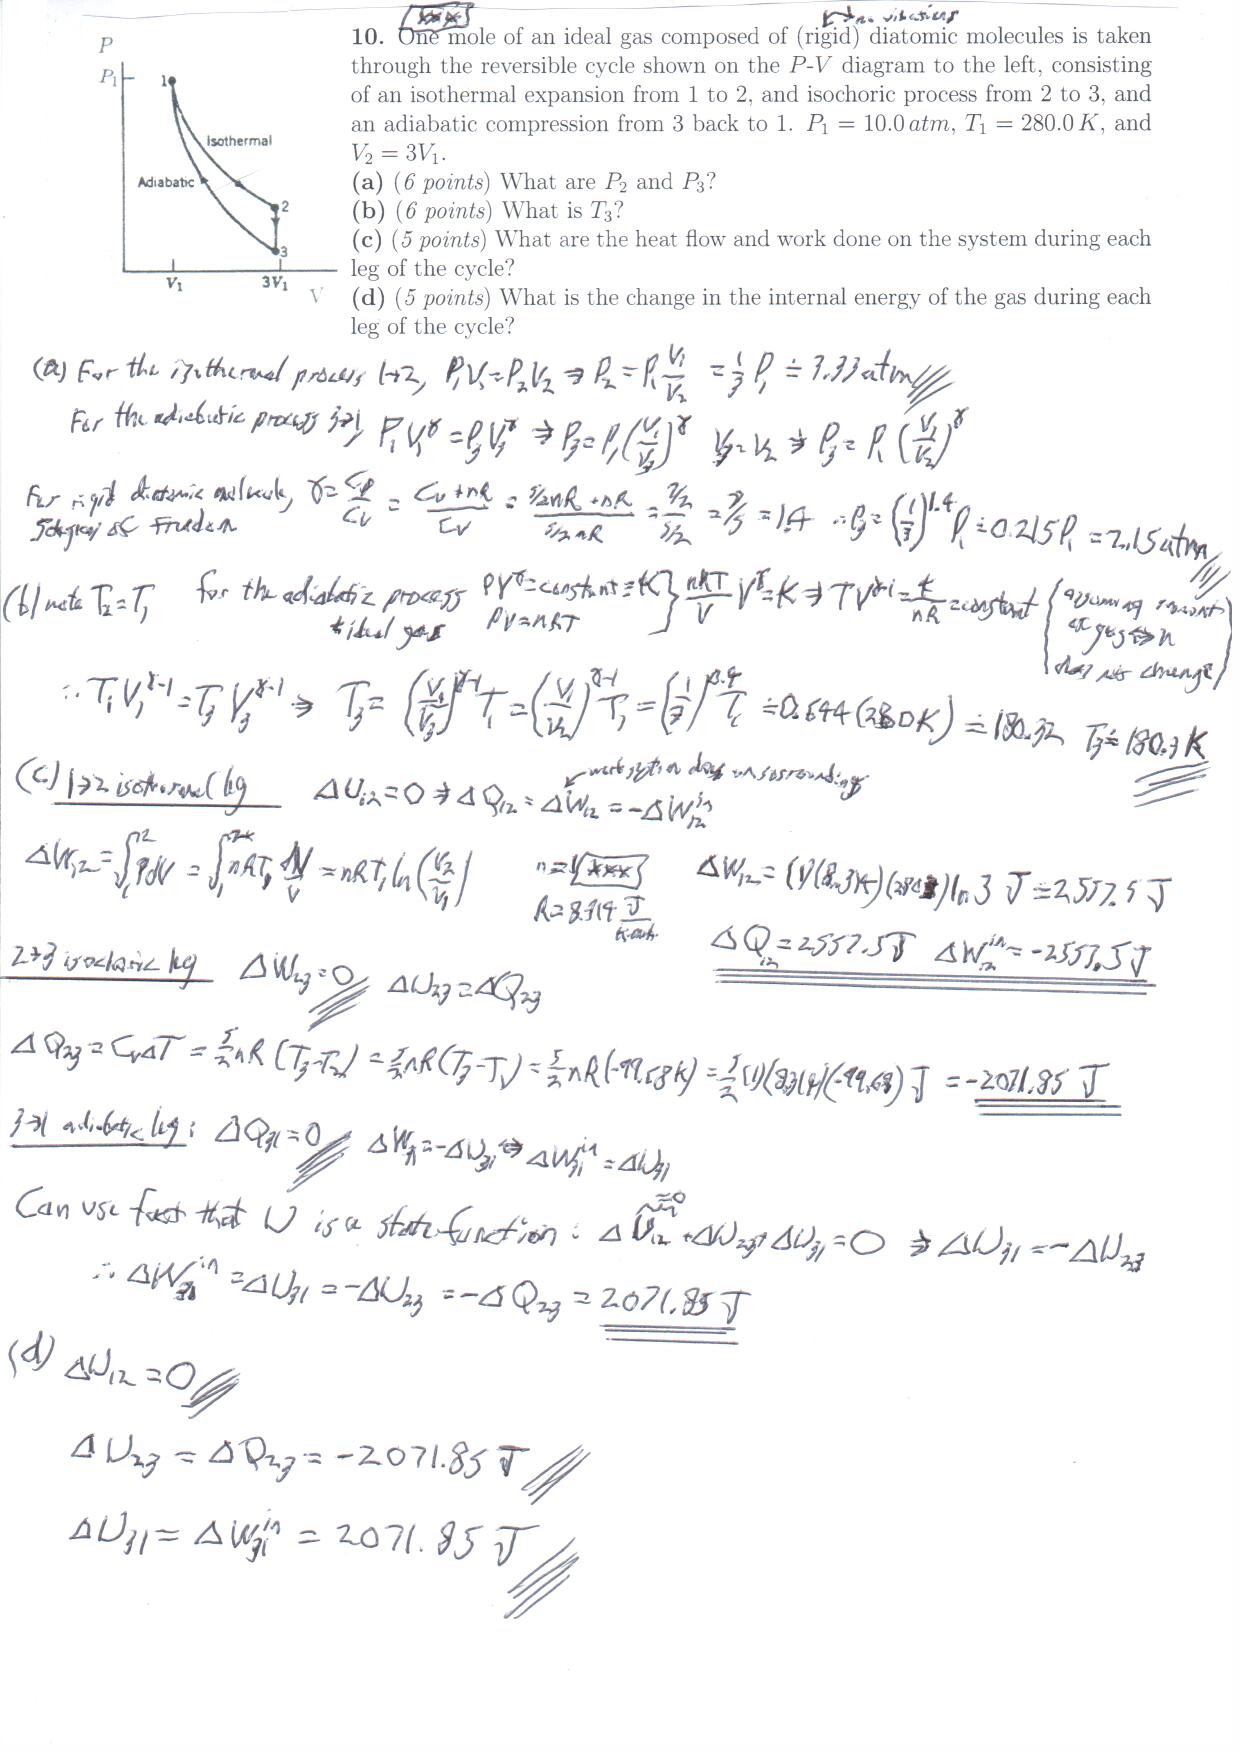 P
P₁
1
Isothermal
Adiabatic
2
3
V₁ 3V₁ V
*** → no vibrations
10. One mole of an ideal gas composed of (rigid) diatomic molecules is taken
through the reversible cycle shown on the P-V diagram to the left, consisting
of an isothermal expansion from 1 to 2, and isochoric process from 2 to 3, and
an adiabatic compression from 3 back to 1. P₁ = 10.0 atm, T₁ = 280.0 K, and
V₂ = 3V₁.
(a) (6 points) What are P₂ and P₃?
(b) (6 points) What is T₃?
(c) (5 points) What are the heat flow and work done on the system during each
leg of the cycle?
(d) (5 points) What is the change in the internal energy of the gas during each
leg of the cycle?
(a) For the isothermal process 1→2, P₁V₁=P₂V₂ ⇒ P₂ = P₁ V₁/V₂ = 1/3 P₁ ≐ 3.33 atm
For the adiabatic process 3→1, P₁V₁^γ = P₃V₃^γ ⇒ P₃ = P₁(V₁/V₃)^γ V₃=V₂ ⇒ P₃ = P₁(V₁/V₂)^γ
For rigid diatomic molecule, γ = Cp/Cv = (Cv+nR)/Cv = (5/2nR+nR)/(5/2nR) = (7/2)/(5/2) = 7/5 = 1.4 ∴ P₃ = (1/3)^1.4 P₁ ≐ 0.215P₁ = 2.15 atm
5 degrees of Freedom
(b) note T₂=T₁ for the adiabatic process PV^γ=constant=K } nRT/V V^γ=K ⇒ TV^γ-1 = K/nR = constant (assuming amount
+ ideal gas PV=nRT of gas ⇔ n
does not change)
∴ T₁V₁^γ-1 = T₃V₃^γ-1 ⇒ T₃ = (V₁/V₃)^γ-1 T₁ = (V₁/V₂)^γ-1 T₁ = (1/3)^0.4 T₁ ≐ 0.644(280K) ≐ 180.32 T₃ ≐ 180.3 K
(c) 1→2 isothermal leg ΔU₁₂=0 ⇒ ΔQ₁₂ = ΔW₁₂ = -ΔW₁₂^in ← work system does on surroundings
ΔW₁₂ = ∫₁² PdV = ∫₁² nRT₁ dV/V = nRT₁ ln(V₂/V₁) n=1 *** ΔW₁₂ = (1)(8.314)(280) ln 3 J ≐ 2557.5 J
R=8.314 J/K·mol
ΔQ₁₂ = 2557.5 J ΔW₁₂^in = -2557.5 J
2→3 isochoric leg ΔW₂₃=0 ΔU₂₃=ΔQ₂₃
ΔQ₂₃ = CvΔT = 5/2 nR (T₃-T₂) = 5/2 nR(T₃-T₁) = 5/2 nR(-99.68K) = 5/2 (1)(8.314)(-99.68) J = -2071.85 J
3→1 adiabatic leg: ΔQ₃₁=0 ΔW₃₁=-ΔU₃₁ ⇔ ΔW₃₁^in = ΔU₃₁
Can use fact that U is a state function: ΔU₁₂ (=0) + ΔU₂₃ + ΔU₃₁ = 0 ⇒ ΔU₃₁ = -ΔU₂₃
∴ ΔW₃₁^in = ΔU₃₁ = -ΔU₂₃ = -ΔQ₂₃ = 2071.85 J
(d) ΔU₁₂ = 0
ΔU₂₃ = ΔQ₂₃ = -2071.85 J
ΔU₃₁ = ΔW₃₁^in = 2071.85 J